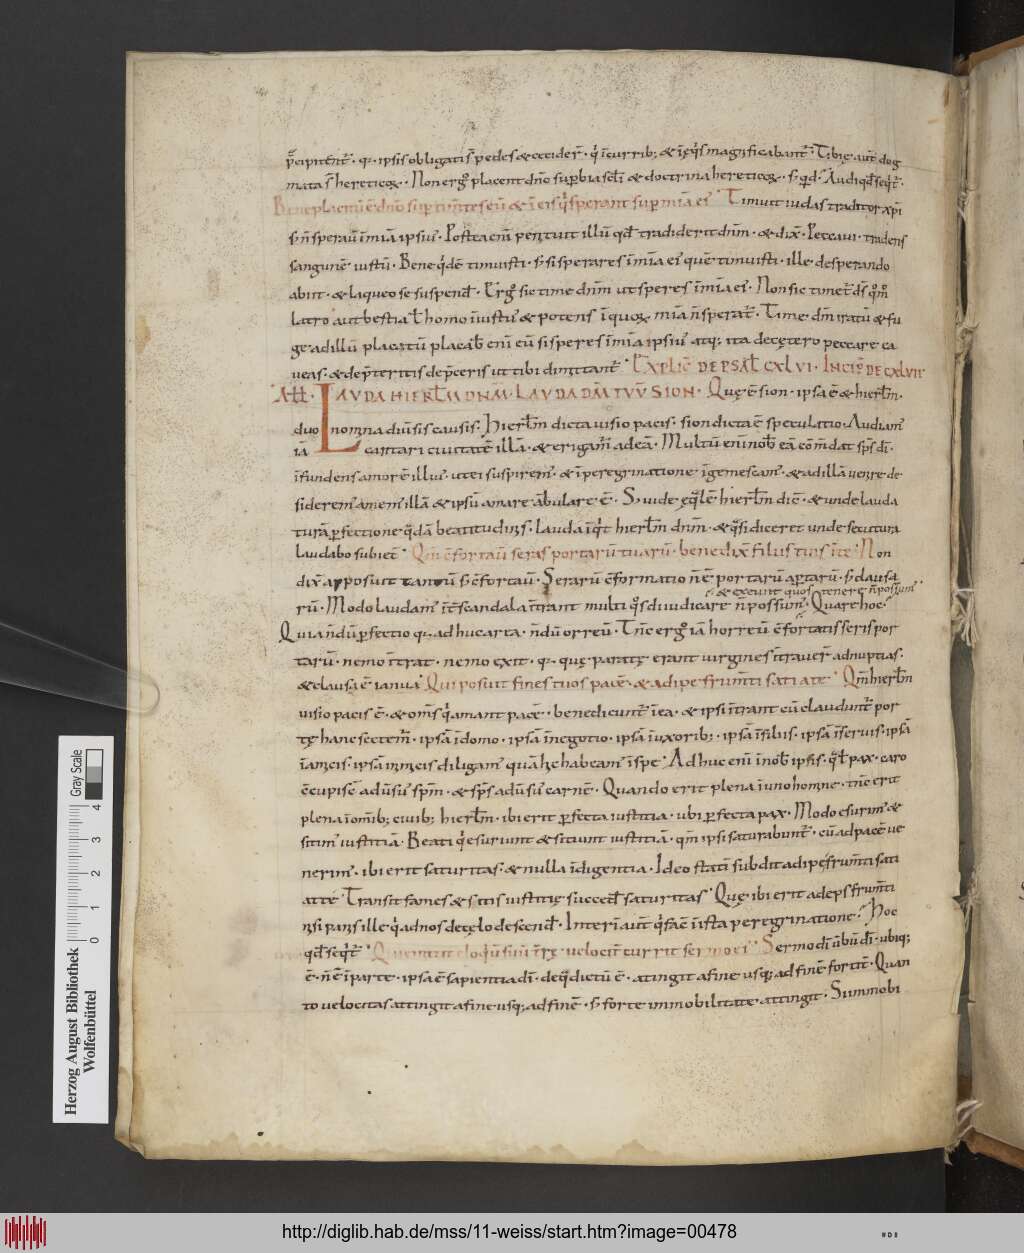 p̄cipitent᷑· q· ipsis obligati s̄ pedes & cecider̄· q̇ i currib; & i ęq̇s magnificabant᷑· Tibię aut̄ dog
mata s̄ hereticoꝝ· Non ergo placent dn̄o supbia sc̄li & doctrina hereticoꝝ· s; qd· Audi qd̄ seqt᷑·
Beneplacitū ē dn̄o sup timētes eū & i eis q̇ sperant sup mīa ei᷒· Timuit iudas traditor xp̄i
s; n̄ speraū i mīa ipsiu᷒· Postea eni penituit illū qd̄ tradiderit dn̄m· & dix̄· Peccaui· tradens
sanguinē iustū· Bene qdē timuisti· s; si sperares i mīa ei᷒ quē timuisti· ille desperando
abiit· & laqueo se suspend̄· Ergo sic time dn̄m ut speres i mīa ei᷒· Non sic timet᷑ ds̄ qm̄o
latro aut bestia ł homo iniustu᷒ & potens i quoꝝ mīa n̄ sperat᷑· Time dn̄m iratū & fu
ge ad illū placatū placab᷑ eni eū si speres i mīa ipsiu᷒ atq; ita decętero peccare ca
ueas· & de p̄teritis dep̄ceris ut tibi dimittant᷑· EXPLIC̄ DE PSAL̄ CXLVI· INCIP̄ DE CXLVII·
ALL· LAVDA HIERL̄M DN̄M· LAVDA DM̄ TVV̄ SION· Quę ē sion· ipsa ē & hierlm̄·
duo nomina diūsis causis· Hierlm̄ dicta uisio pacis· sion dicta ē speculatio· Audiam᷒
iā cantari ciuitatē illā· & erigam᷒ ad eā· Multū eni nob᷑ eā cōm̄dat sp̄s dī·
infundens amorē illiu᷒ ut ei suspirem᷒· & i peregrinatione ingemescam᷒· & ad illā uenire de·
siderem᷒ amem᷒ illā & ipsū amare ābulare ē· S; uide q̄lē hierlm̄ dic̄· & unde lauda
turā pfectione qdā beatitudinis· Lauda inqt hierlm̄ dn̄m· & qsi diceret unde secutura
laudabo subiec̄· Qm̄ cfortaū seras portarū tuarū· benedix̄ filiis tuis i te· Non
dix̄ apposuit tantū s; cfortaū· Serarū cformatio n̄ē portarū aptarū· s; clausa
& exeunt quos tenere n̄ possum᷒
rū· Modo laudam᷒ it᷑ scandala intrant multi qs diiudicare n̄ possum᷒· Quare hoc·
Quia nd̄ū pfectio q· adhuc arta· nd̄ū orreū· Tn̄c ergo iā horreū cfortatis seris por
tarū· nemo intrat· nemo exit· q· quę paratę erant uirgines intrauer̄ ad nuptias·
& clausa ē ianua· Qui posuit fines tuos pacē· & adipe frumti satiat te· Qm̄ hierlm̄
uisio pacis ē· & oms q̇ amant pacē· benedicunt᷑ in ea· & ipsi intrant eū claudunt᷑ por
tę hanc sectem᷒· ipsā i domo· ipsā i negotio· ipsā i uxorib;· ipsā i filiis· ipsā i seruis· ipsā
i amicis· ipsā inimicis diligam᷒ quā hic habeam᷒ i spe· Adhuc eni i nob᷑ ipsis· q̄l pax· caro
ccupisc̄ adūsu᷒ sp̄m· & sp̄s adūsu᷒ carnē· Quando erit plena in uno homine· tn̄c erit
plena in omib; ciuib; hierlm̄· ibi erit pfecta iustitia· ubi pfecta pax· Modo esurim᷒ &
sitim᷒ iustitiā· Beati q̇ esuriunt & sitiunt iustitiā· qm̄ ipsi saturabunt᷑· cū ad pacē ue
nerim᷒· ibi erit saturitas· & nulla indigentia· Ideo statī subdit adipe frumti sati
at te· Transit fames & sitis iustitię succed̄ saturitas· Quę ibi erit adeps frumti
nisi panis ille q̇ ad nos de cęlo descend̄· Interī aut q̇ fac̄ i ista peregrinatione· Hoc
qd̄ seqt᷑· Qui emittit eloquiū suū trę· uelocit᷑ currit sermo ei᷒· Sermo dī ūbū dī· ubiq;
ē· n̄ē i parte· ipsa ē sapientia dī· de q̄ dictū ē· attingit a fine usq; ad finē fortit᷑· Quan
to uelocitas attingit a fine usq; ad finē· s; forte immobilitate attingit· Si immobi
Herzog August Bibliothek
Wolfenbüttel
0 1 2 3 4
Gray Scale
http://diglib.hab.de/mss/11-weiss/start.htm?image=00478